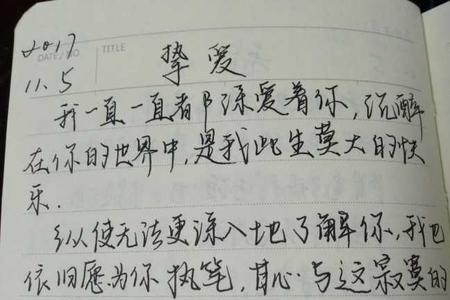 2017
DATE/NO. TITLE
11.5 挚爱
我一直一直都深爱着你,沉醉
在你的世界中,是我此生莫大的快
乐.
纵使无法更深入地了解你,我也
依旧愿为你执笔,甘心与这寂寞的